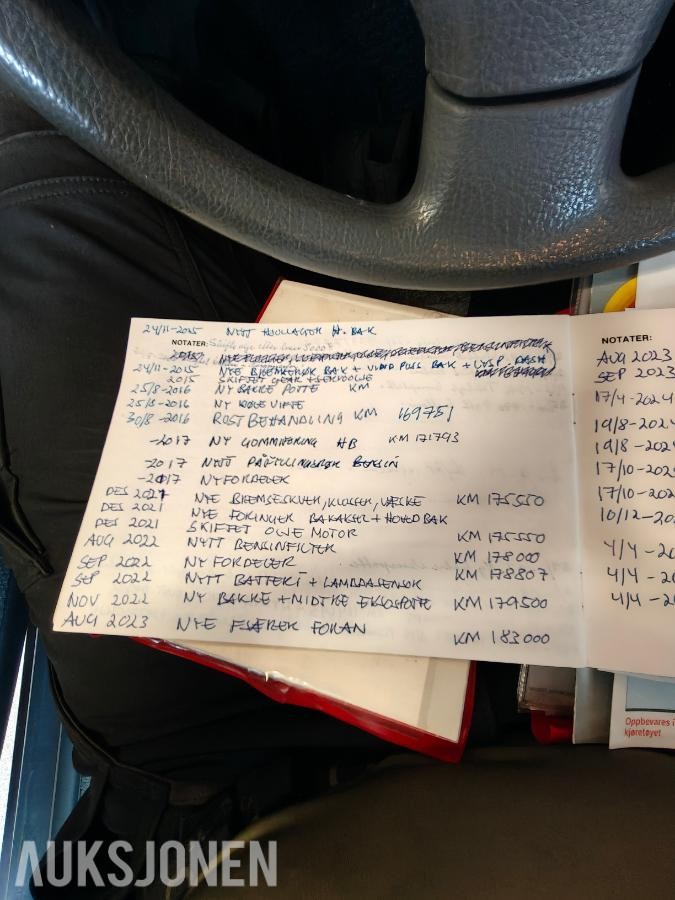 24/11-2015 NYTT HJULLAGER H. BAK
NOTATER:
2015
24/11-2015 NYE BREMSERØR BAK + VINDPUSS BAK + LYSP. DASH
2015 SKIFTET GEAR +
25/8-2016 NY BAKRE POTTE KM
25/8-2016 NY VIFTE
30/8-2016 RUSTBEHANDLING KM 169751
-2017 NY GUMMIFØRING HB KM 171793
-2017 NYTT PÅFYLLINGSRØR BENSIN
-2017 NY FORDELER
DES 2021 NYE BREMSESKIVER, KLOSSER, VÆSKE KM 175550
DES 2021 NYE FORINGER BAKAKSEL + HOVED BAK
DES 2021 SKIFTET OLJE MOTOR KM 175550
AUG 2022 NYTT BENSINFILTER KM 178000
SEP 2022 NY FORDELER KM 178807
SEP 2022 NYTT BATTERI + LAMBDASENSOR
NOV 2022 NY BAKRE + MIDTRE EKSOSPOTTE KM 179500
AUG 2023 NYE FJÆRER FORAN KM 183000
NOTATER:
AUG 2023
SEP 2023
17/4-2024
19/8-2024
19/8-2024
17/10-202
17/10-202
10/12-20
4/4-20
4/4-20
4/4-20
Oppbevares i
kjøretøyet
AUKSJONEN